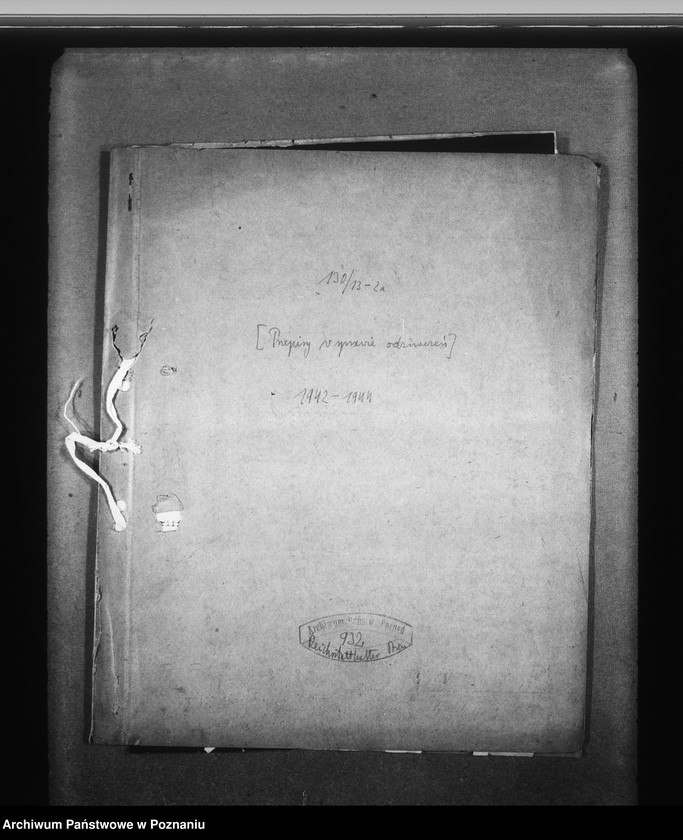 130/13-2a
[Przepisy w sprawie odznaczeń]
1942-1944
Archiwum Państw. Poznań
932
Reichsstatthalter
Archiwum Państwowe w Poznaniu